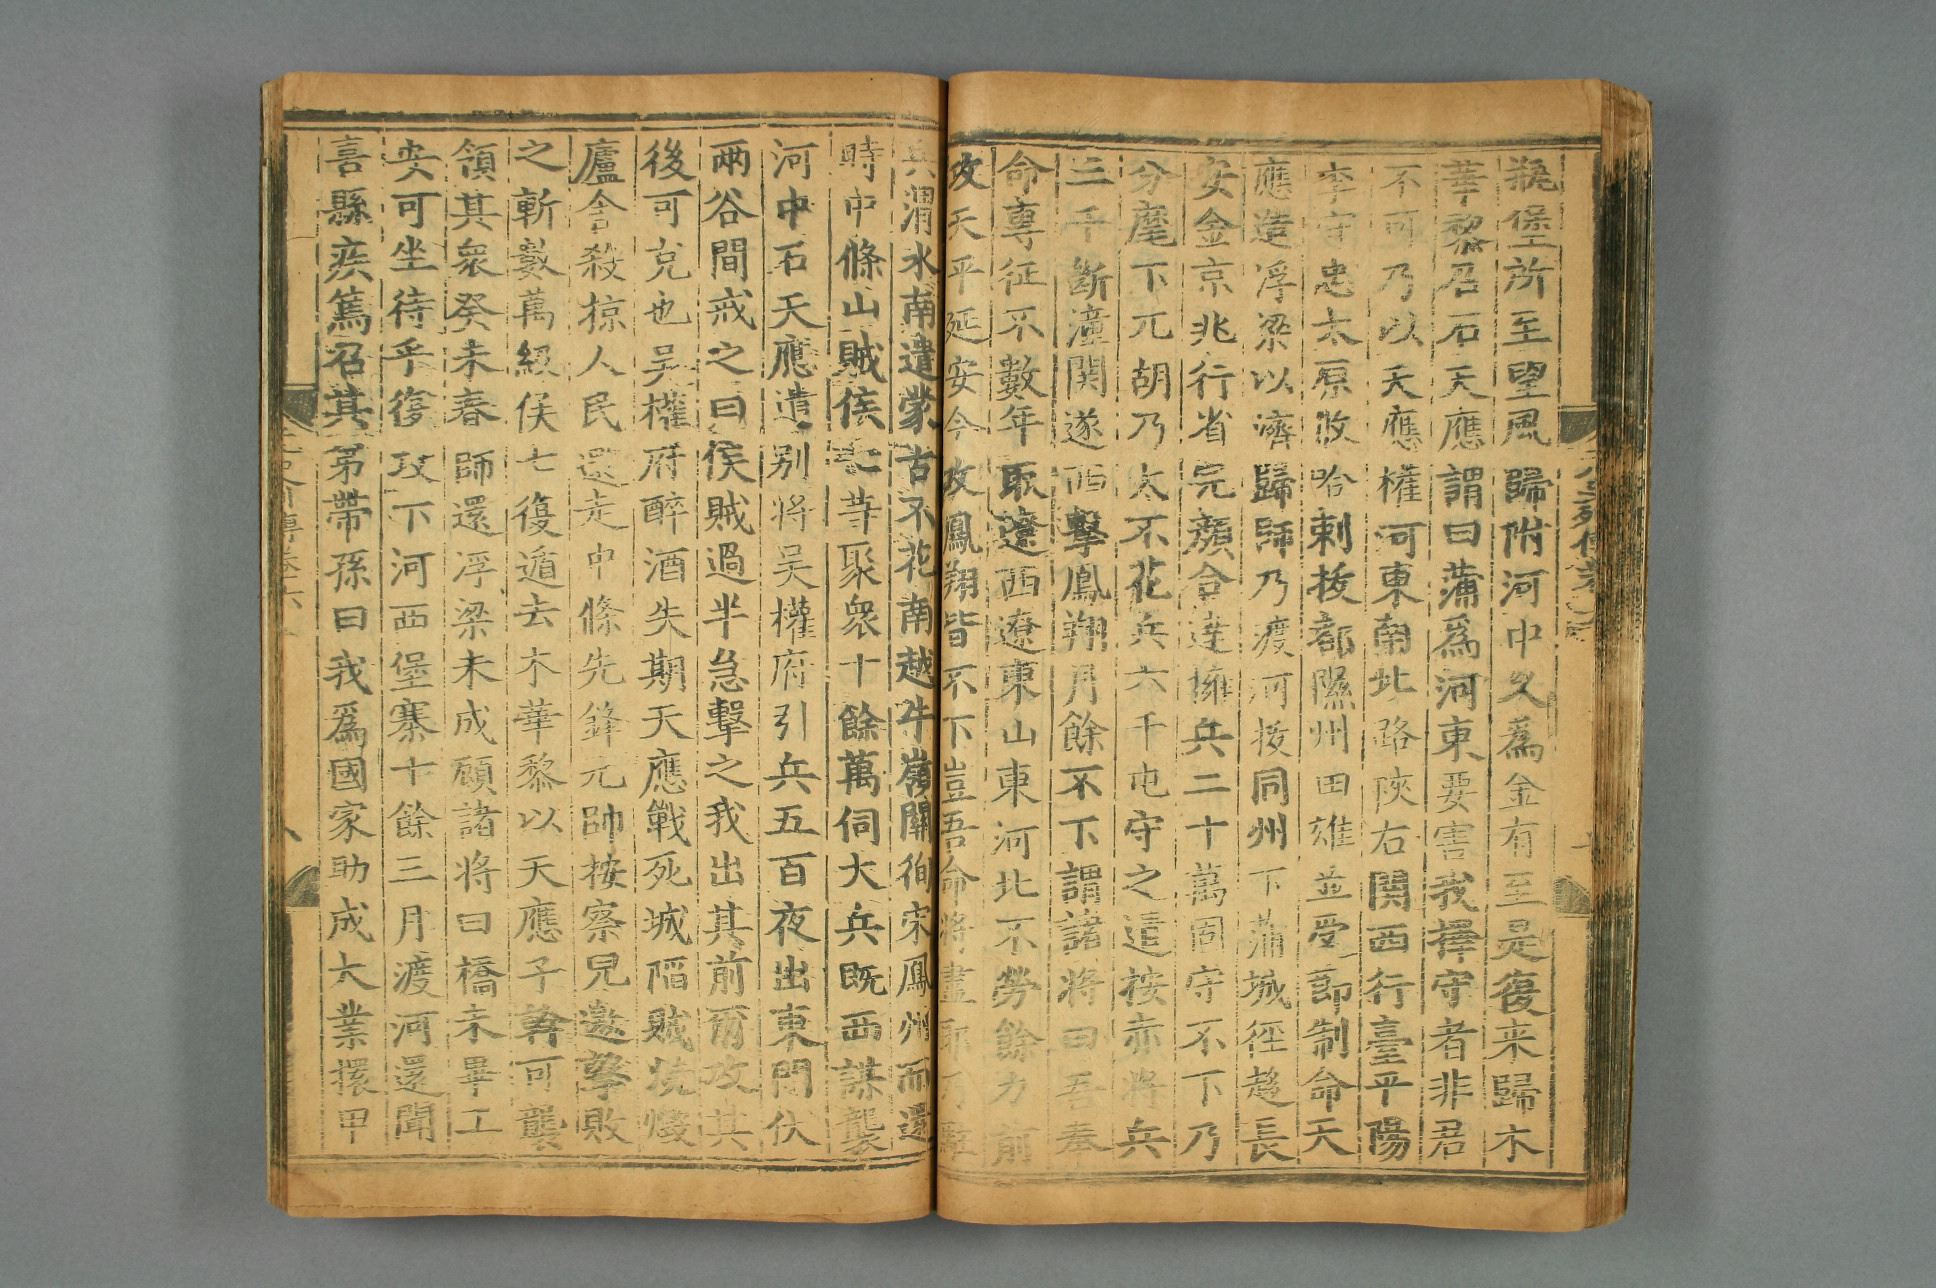 元史列傳卷六
堡所至望風歸附河中久爲金有至是復来歸木
華黎召石天應謂曰蒲爲河東要害我擇守者非君
不可乃以天應權河東南北路陝右関西行臺平陽
李守忠太原攸哈剌拔都隰州田雄並受節制命天
應造浮梁以濟歸師乃渡河拔同州下蒲城徑趨長
安金京兆行省完顏合達擁兵二十萬固守不下乃
分麾下兀胡乃太不花兵六千屯守之遣按赤將兵
三千断潼関遂西擊鳳翔月餘不下謂諸將曰吾奉
命専征不數年取遼西遼東山東河北不勞餘力前
攻天平延安今攻鳳翔皆不下豈吾命將盡耶乃駐
兵渭水南遣蒙古不花南越牛嶺關徇宋鳳州而還
時中條山賊侯七等聚衆十餘萬伺大兵既西謀襲
河中石天應遣别将吴權府引兵五百夜出東門伏
兩谷間戒之曰侯賊過半急擊之我出其前爾攻其
後可克也吴權府醉酒失期天應戰死城陷賊焼燬
廬舎殺掠人民還走中條先鋒元帥按察兒邀擊敗
之斬數萬級侯七復遁去木華黎以天應子斡可襲
領其衆癸未春師還浮梁未成顧諸将曰橋未畢工
安可坐待乎復攻下河西堡寨十餘三月渡河還聞
喜縣疾篤召其弟帶孫曰我爲國家助成大業擐甲
元史列傳卷六
八